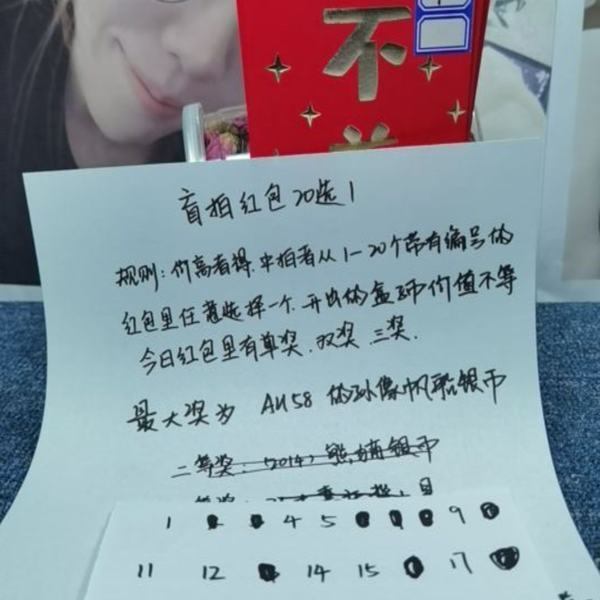 不
盲拍红包20选1
规则：价高者得.中拍者从1-20个带有编号的
红包里任意选择一个.开出的盒子币价值不等
今日红包里有单奖.双奖.三奖.
最大奖为 AU58 的孙像帆船银币
二等奖：(2014) 熊猫银币
1 4 5 9
11 12 14 15 17